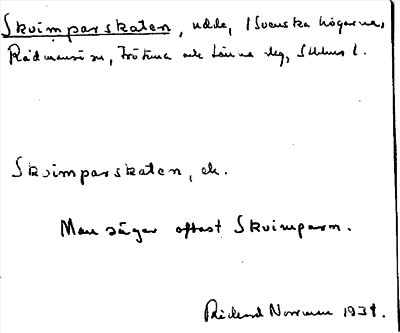 Skvimparskaten, udde, i Svenska högarna,
Rådmansö sn, Frötuna och Länna skg, Sthlms l.
Skvimparskaten, ek.
Man säger oftast Skvimparn.
Rickard Norrman 1931.